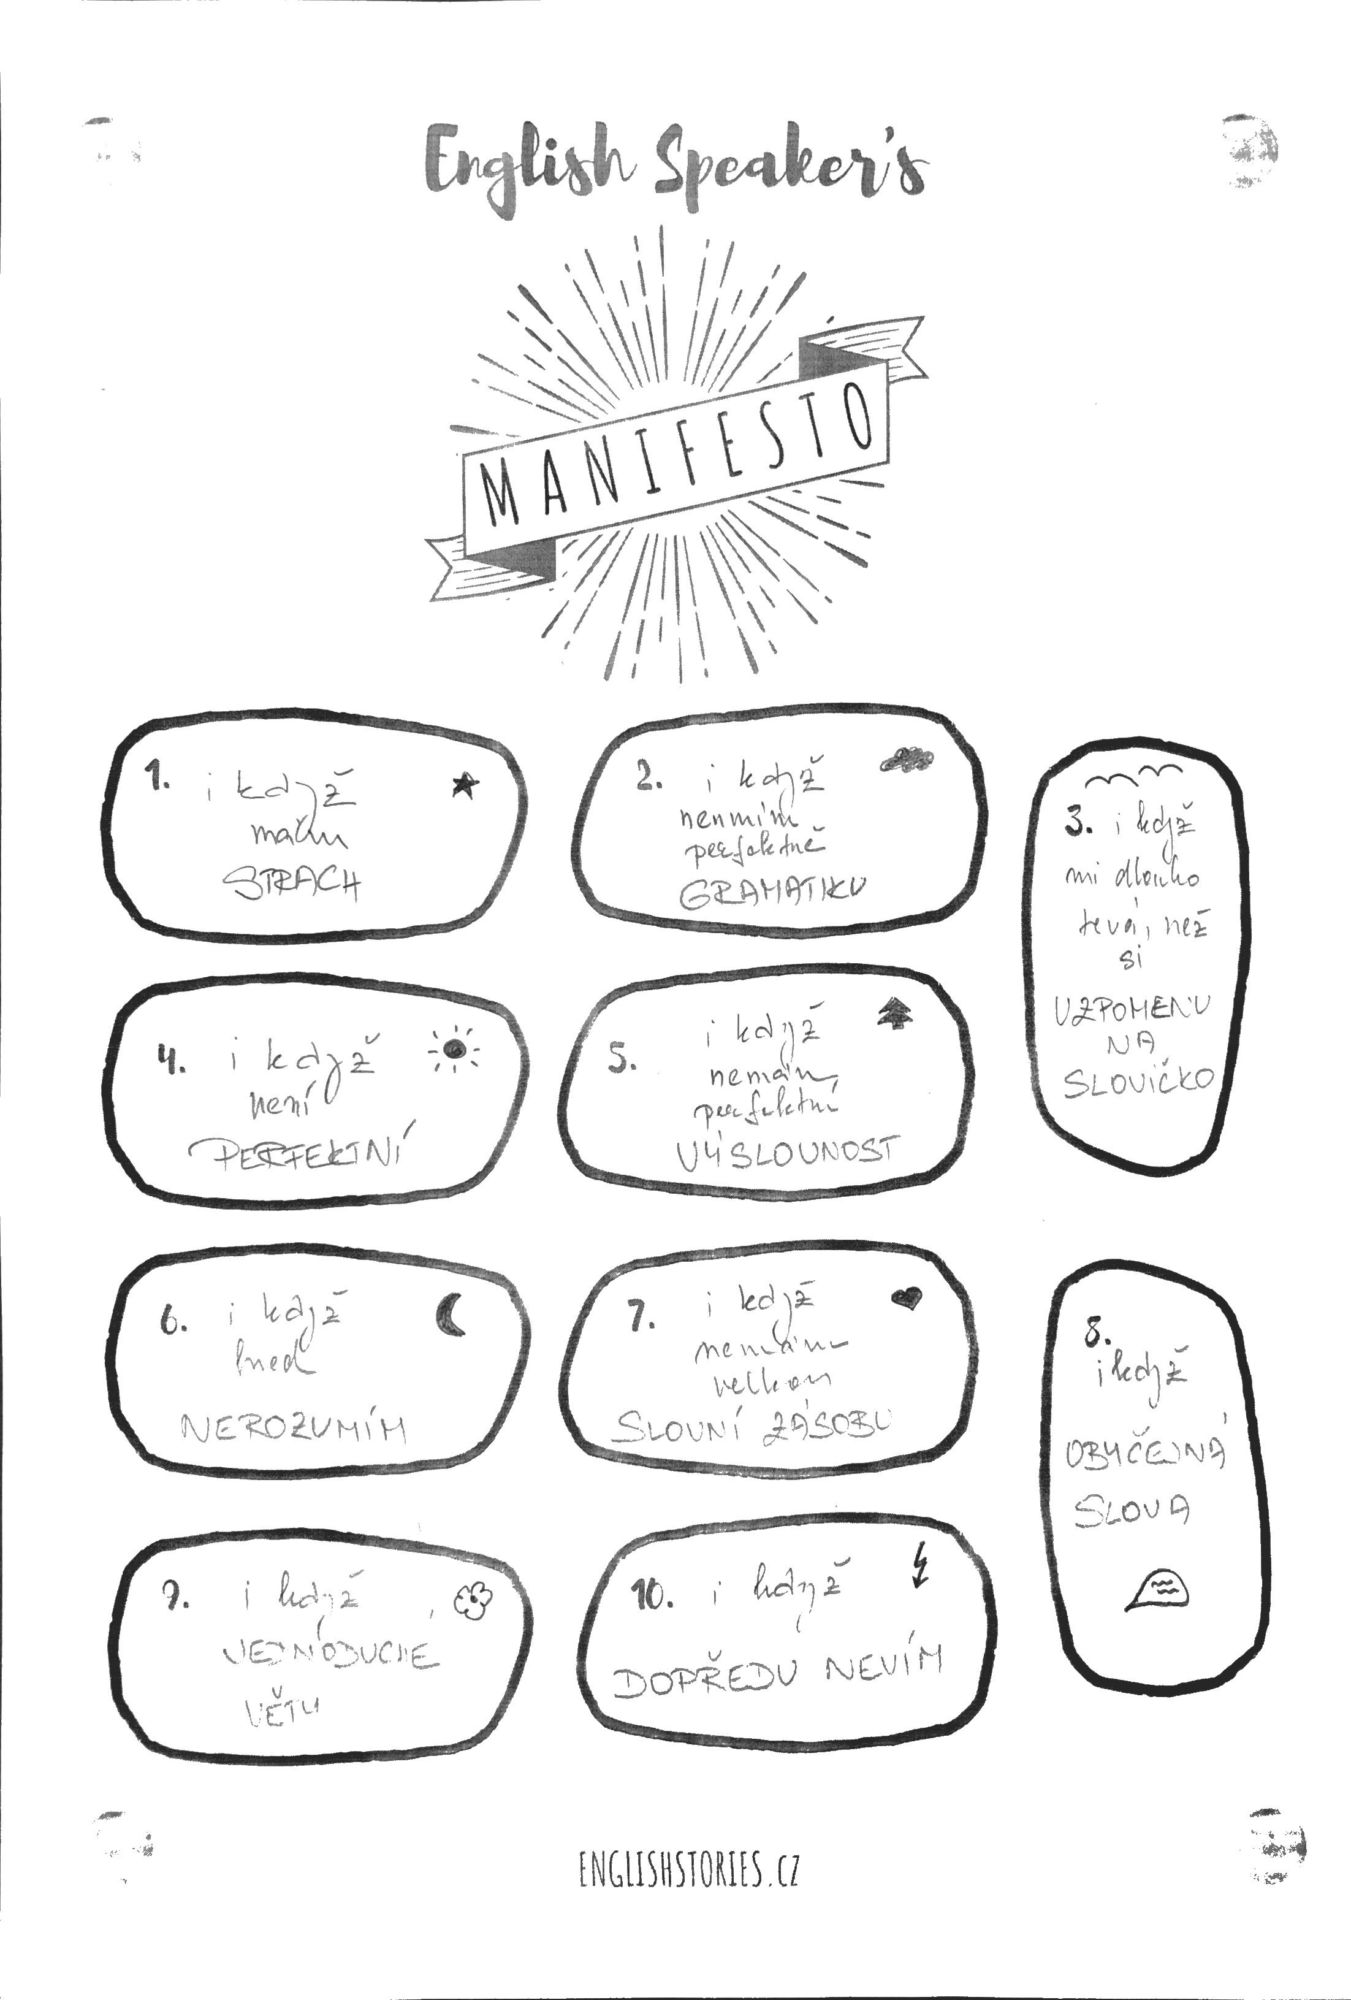 English Speaker's
MANIFESTO
1. i když
mám
STRACH
2. i když
neumím
perfektně
GRAMATIKU
3. i když
mi dlouho
trvá, než
si
VZPOMENU
NA
SLOVÍČKO
4. i když
není
PERFEKTNÍ
5. i když
nemám
perfektní
VÝSLOVNOST
6. i když
hned
NEROZUMÍM
7. i když
nemám
velkou
SLOVNÍ ZÁSOBU
8.
i když
OBYČEJNÁ
SLOVA
9. i když
JEDNODUCHÉ
VĚTY
10. i když
DOPŘEDU NEVÍM
ENGLISHSTORIES.CZ